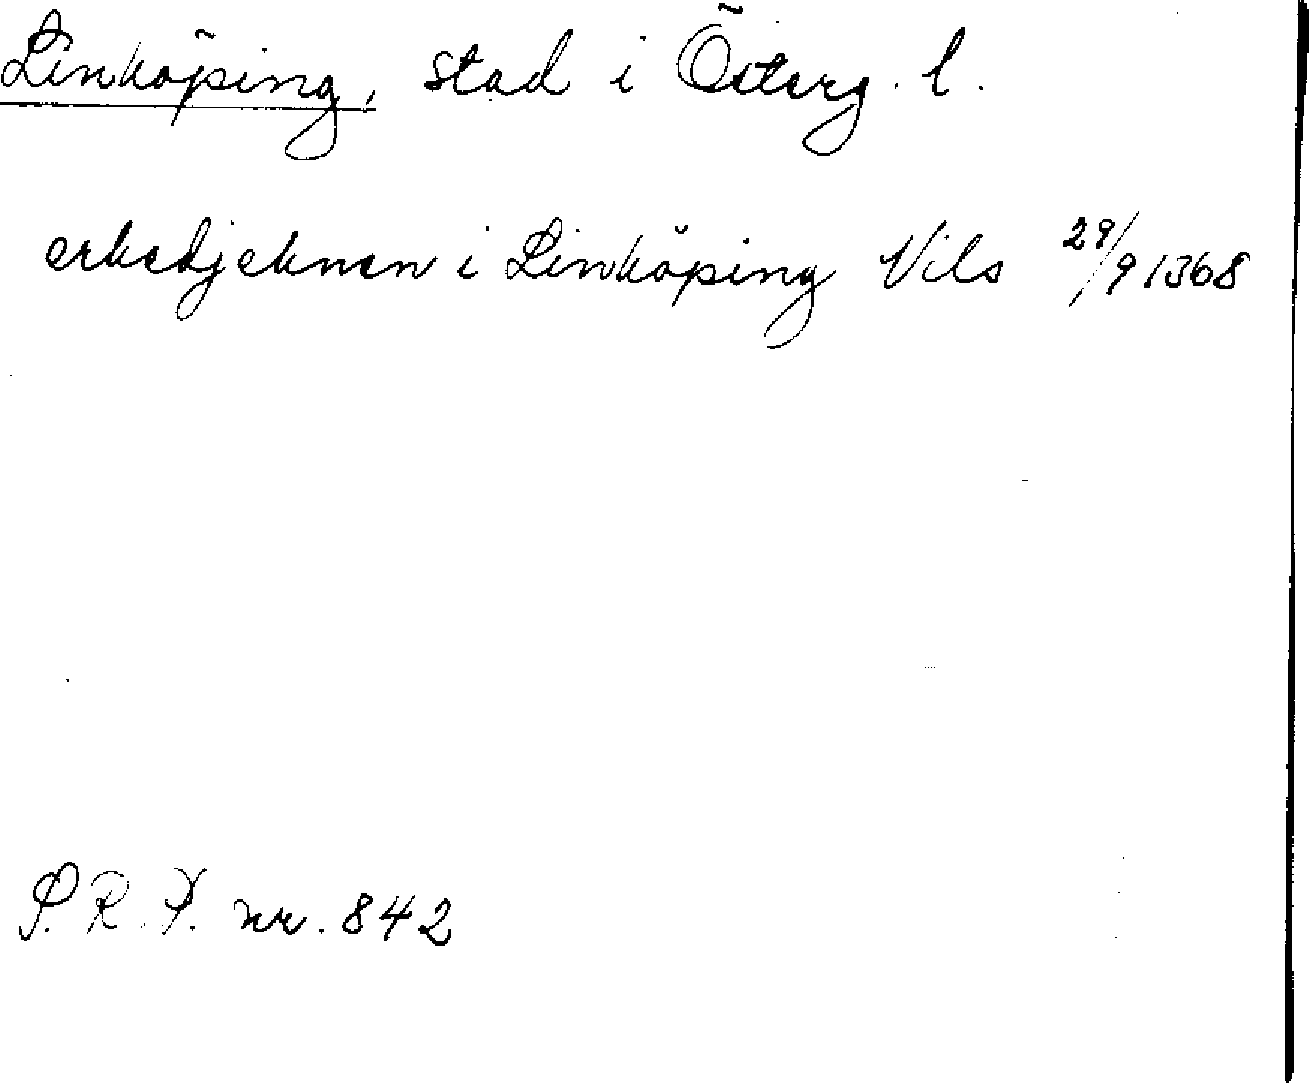 Linköping, stad i Österg. l.
erkedjeknen i Linköping Nils 29/9 1368
S.R.P. nr. 842